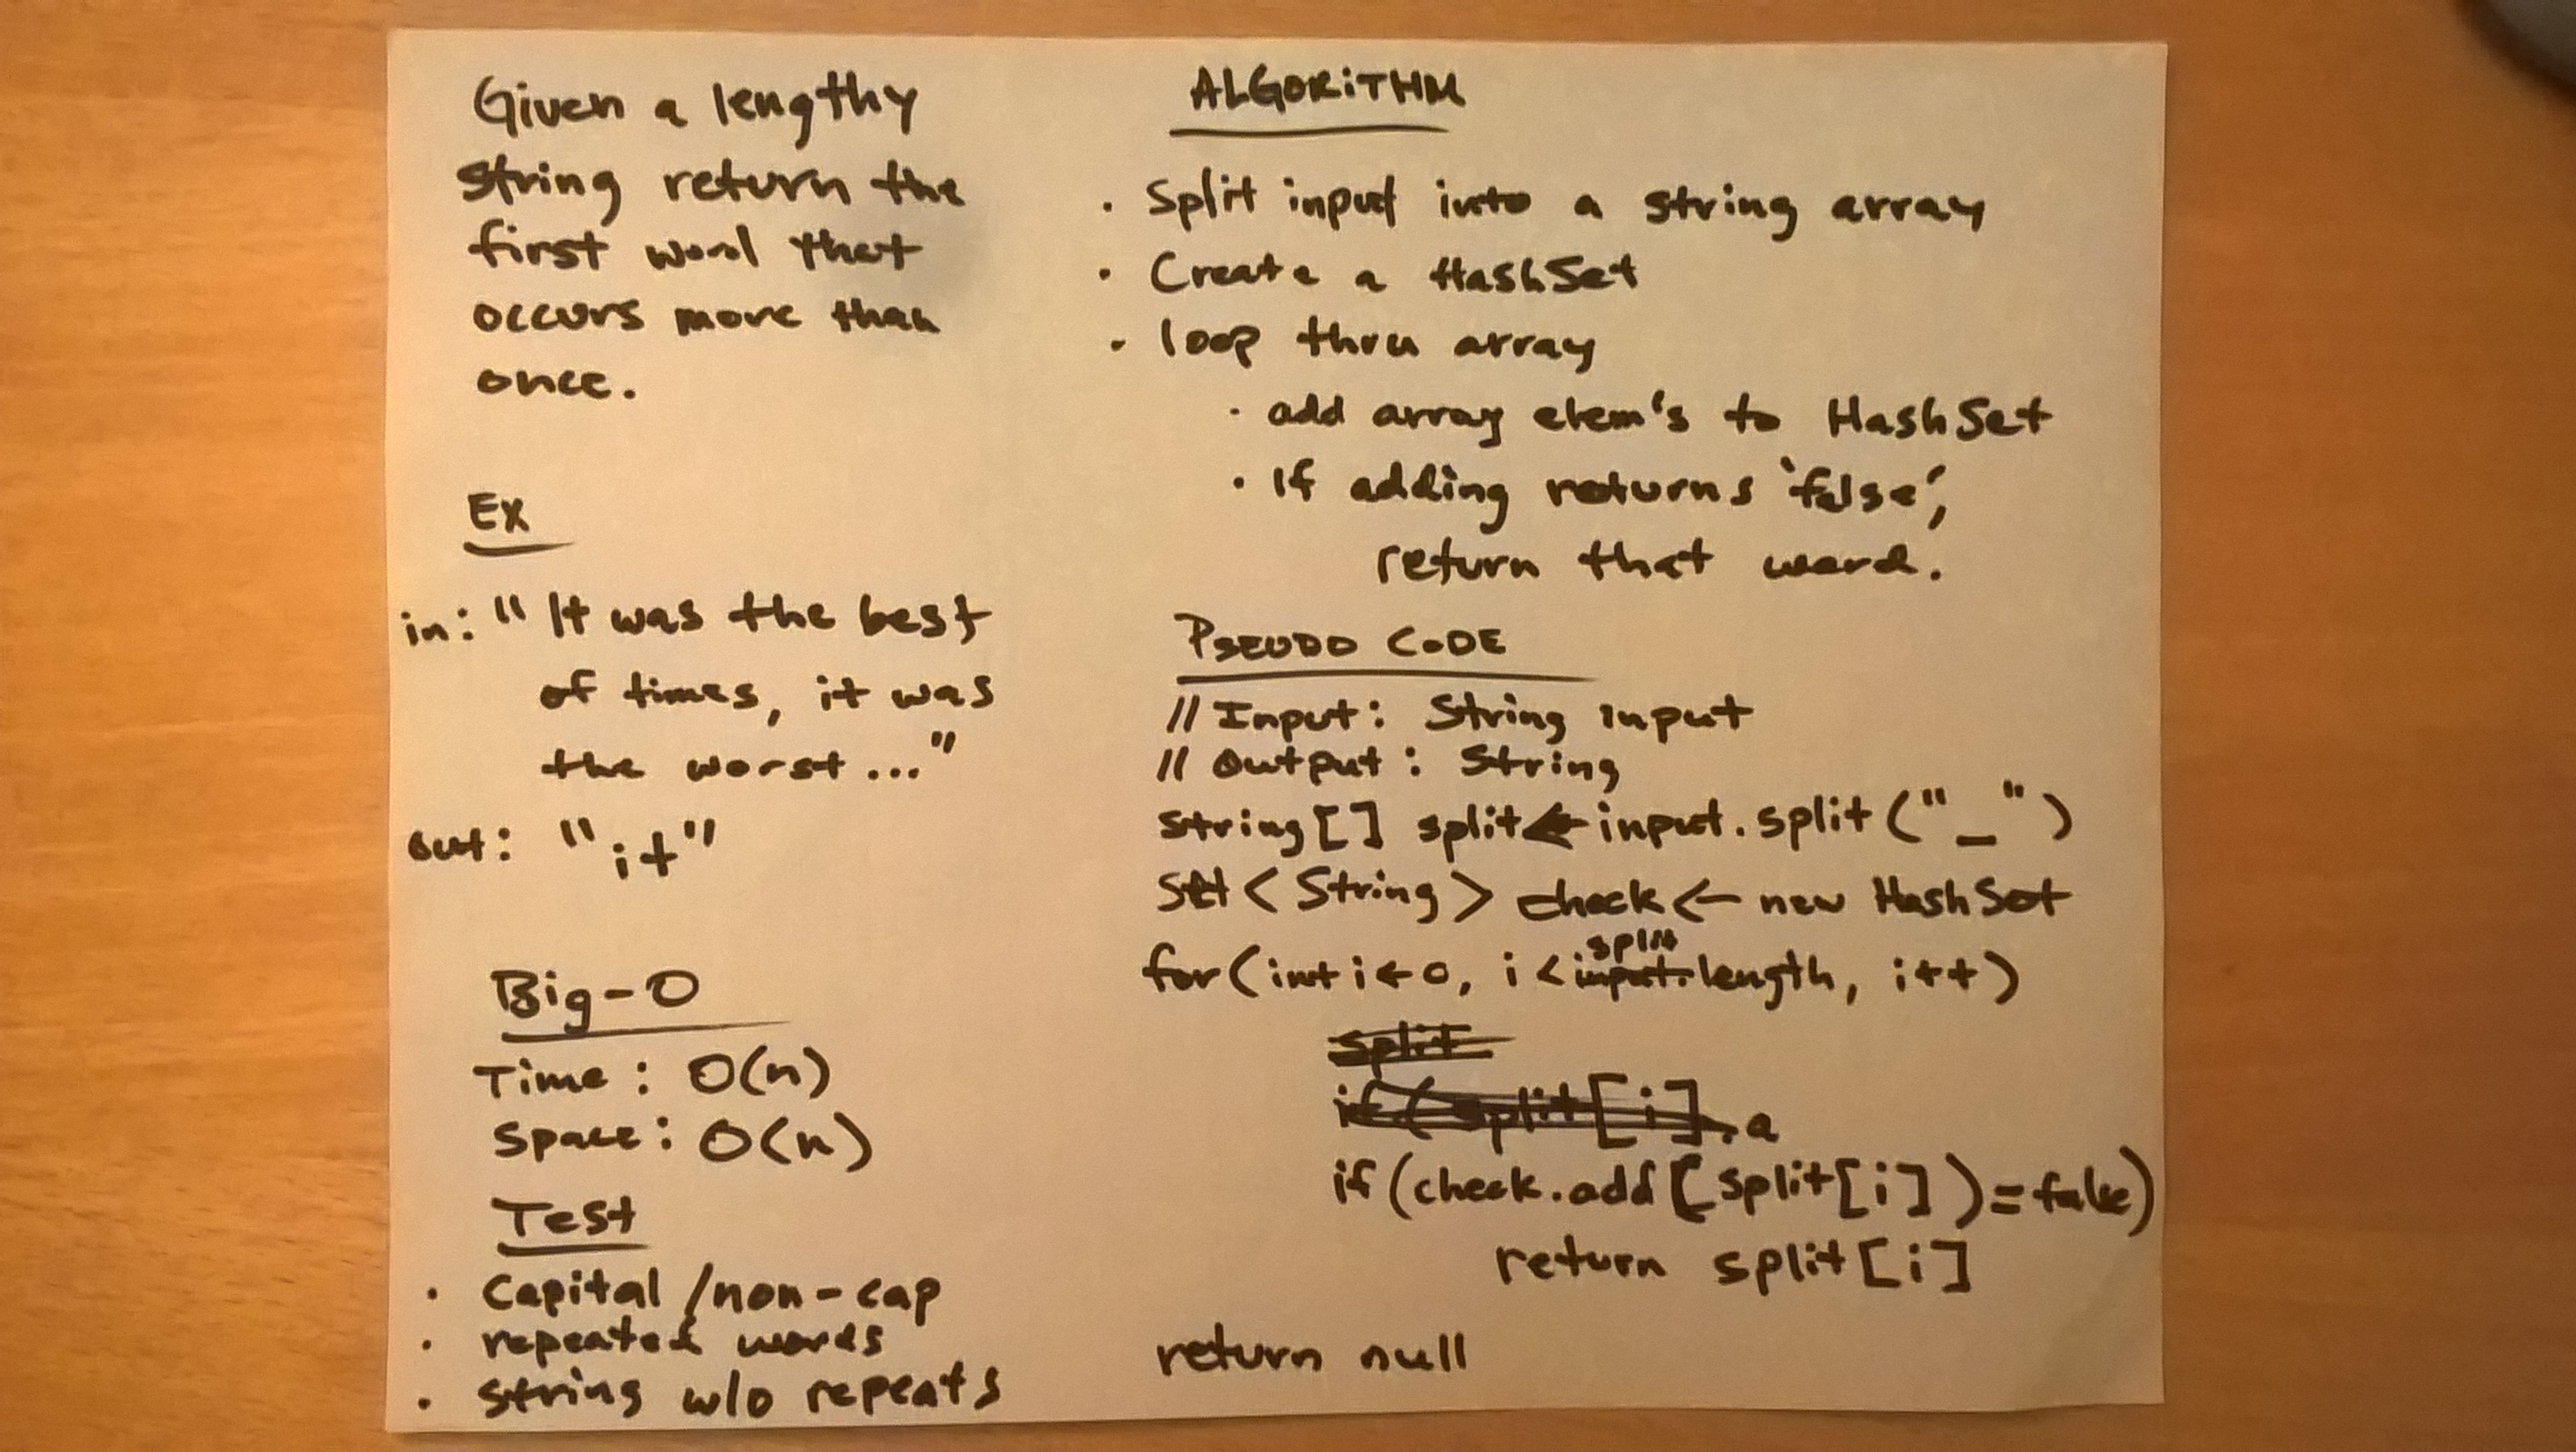 Given a lengthy
string return the
first word that
occurs more than
once.
Ex
in: "It was the best
of times, it was
the worst..."
out: "it"
Big-O
Time: O(n)
Space: O(n)
Test
· Capital/non-cap
· repeated words
· string w/o repeats
ALGORITHM
· Split input into a string array
· Create a HashSet
· loop thru array
· add array elem's to HashSet
· If adding returns 'false',
return that word.
PSEUDO CODE
// Input: String input
// Output: String
String[] split ← input.split("_")
Set<String> check ← new HashSet
split
for(int i ← 0, i < input.length, i++)
split
if(split[i].a
if(check.add[split[i])=false)
return split[i]
return null